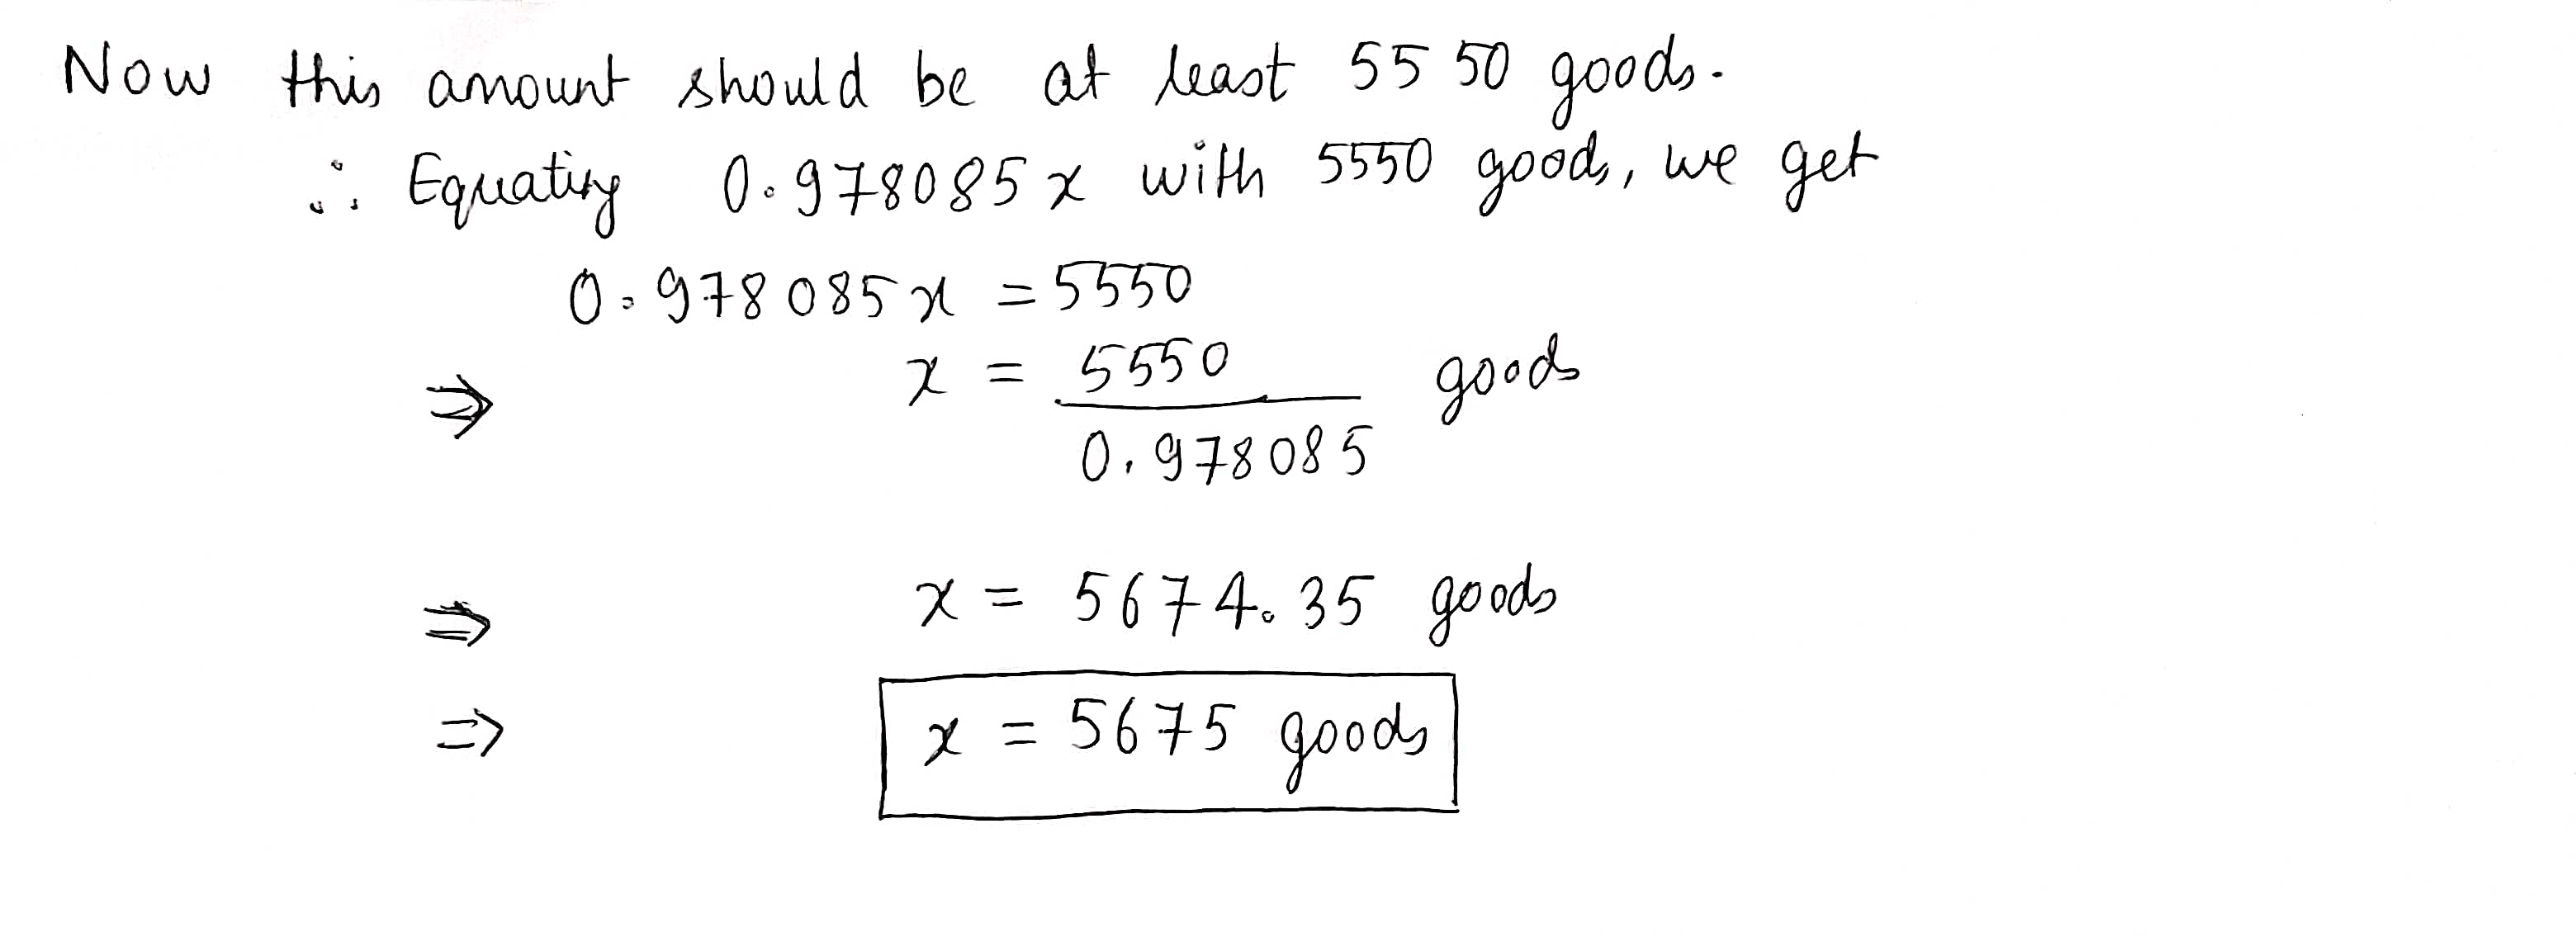 Now this amount should be at least 5550 goods.
∴ Equating 0.978085x with 5550 goods, we get
0.978085x = 5550
⇒ x = 5550 goods
0.978085
⇒ x = 5674.35 goods
⇒ x = 5675 goods